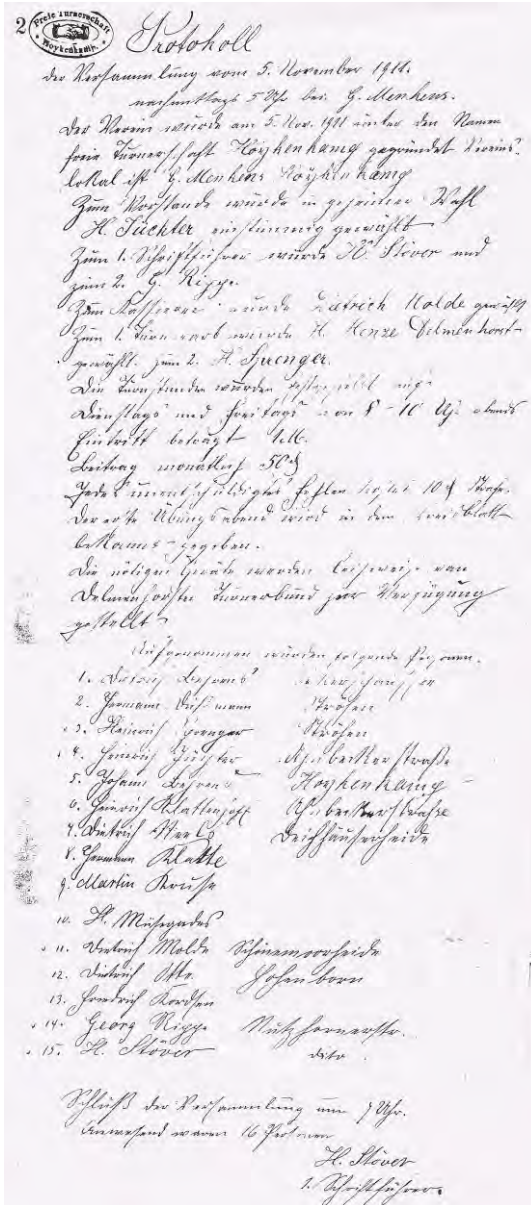 2
Freie Turnerschaft
Hoykenkamp
Protokoll
der Versammlung vom 5. November 1911.
nachmittags 5 Uhr bei G. Menkens.
Der Verein wurde am 5. Nov. 1911 unter den Namen
freie Turnerschaft Hoykenkamp gegründet Vereins-
lokal ist G. Menkens Hoykenkamp
Zum Vorstande wurde in geheimer Wahl
H. Tüchter einstimmig gewählt
Zum 1. Schriftführer wurde H. Stöver und
zum 2. G. Rippe.
Zum Kassierer wurde Dietrich Molde gewählt
Zum 1. Turnwart wurde H. Henze Delmenhorst
gewählt. zum 2. H. Sprenger.
Die Turnstunden wurden festgesetzt auf
Dienstags und Freitags von 8-10 Uhr abends
Eintritt beträgt 1 M.
Beitrag monatlich 50 ₰
Jedes unentschuldigtes Fehlen kostet 10 ₰ Strafe.
Der erste Übungsabend wird in dem Kreisblatt
bekannt gegeben.
Die nötigen Geräte werden leihweise von
Delmenhorster Turnerbund zur Verfügung
gestellt
Aufgenommen wurden folgende Personen.
1. Behrens
2. Hermann Ströhen
3. Heinrich Sprenger Ströhen
4. Heinrich Tüchter
5. Johann Behrens Hoykenkamp
6. Heinrich Klattenhoff
7. Dietrich Deichhäuserheide
8. Hermann Klatte
9. Martin Kruse
10. H. Müsegades
11. Dietrich Molde Schönemoorheide
12. Dietrich Otte Hohenborn
13. Friedrich Kordsen
14. Georg Rippe Nutzhornerstr.
15. H. Stöver dito
Schluß der Versammlung um 7 Uhr.
Anwesend waren 16 Personen
H. Stöver
1. Schriftführer.